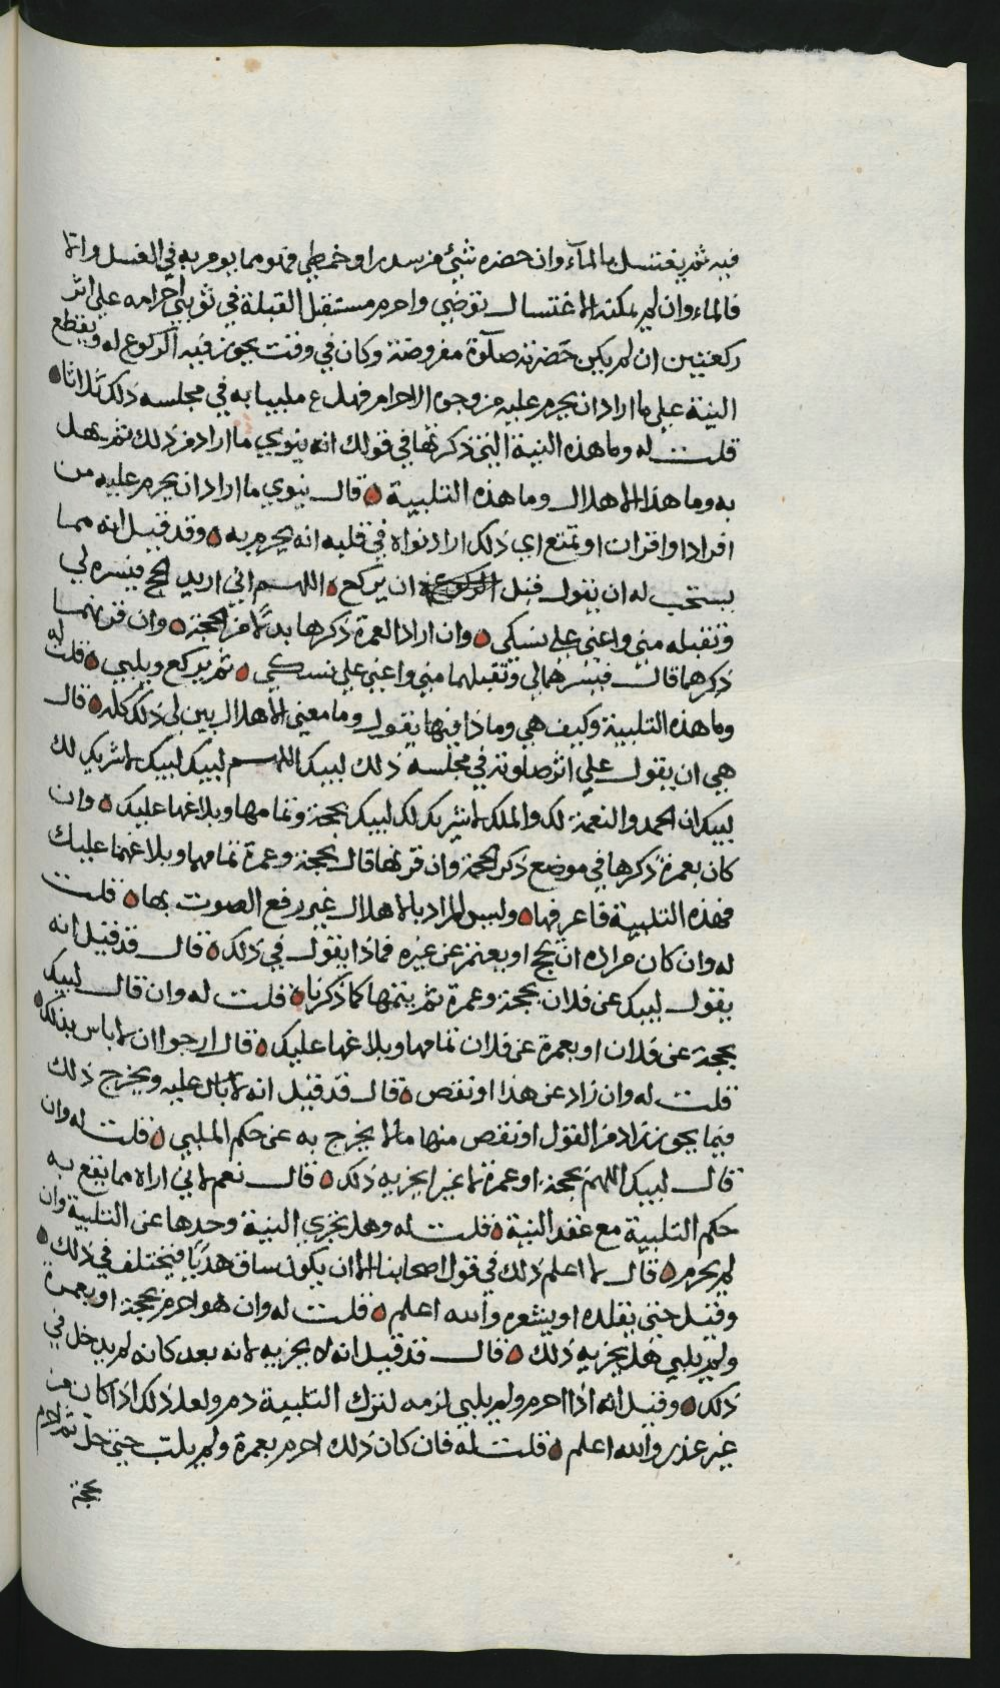 فيه ثم يغتسل بالمآء وان حضره شئ من سدر او خطمي فهو مما يومر به في الغسل والا
فالماء وان لم يمكنه الاغتسال توضي واحرم مستقبل القبلة في ثوبي احرامه علي اثر
ركعتين ان لم يكن حضرته صلوة مفروضة وكان في وقت يجوز فيه الركوع له ويقطع
النية علي ما اراد ان يحرم عليه من وجوه الاحرام فهل ع ملبيا به في مجلسه ذلك ثلاثا
قلت له وما هذه النية التي ذكرتها في قولك انه ينوي ما اراد من ذلك ثم يهل
به وما هذا الاهلال وما هذه التلبية قال ينوي ما اراد ان يحرم عليه من
افراد او اقران او تمتع اي ذلك اراد نواه في قلبه انه يحرم به وقد قيل انه مما
يستحب له ان يقول قبل ان يركع اللهم اني اريد الحج فيسره لي
وتقبله مني واعني علي نسكي وان اراد العمرة ذكرها بدلا من الحجة وان قرنهما
ذكرهما قال فيسرهما لي وتقبلهما مني واعني علي نسكي ثم يركع ويلبي قلت له
وما هذه التلبية وكيف هي وماذا فيها يقول وما معني الاهلال بين لي ذلك كله قال
هي ان يقول علي اثر صلوته في مجلسه ذلك لبيك اللهم لبيك لبيك لا شريك لك
لبيك ان الحمد والنعمة لك والملك لا شريك لك لبيك بحجة وتمامها وبلاغها عليك وان
كان بعمرة ذكرها في موضع ذكر الحجة وان قرنها قال بحجة وعمرة تمامهما وبلاغهما عليك
فهذه التلبية فاعرفها وليس المراد بالاهلال غير رفع الصوت بها قلت
له وان كان مراده ان يحج او يعتمر عن غيره فماذا يقول في ذلك قال قد قيل انه
يقول لبيك عن فلان بحجة وعمرة ثم يتمها كما ذكرنا قلت له وان قال لبيك
بحجة عن فلان او بعمرة عن فلان تمامها وبلاغها عليك قال ارجوا ان لا باس بذلك
قلت له وان زاد عن هذا او نقص قال قد قيل انه لا باس عليه ويخرج ذلك
فيما يجوز زاد من القول او نقص منها مالا يخرج به عن حكم الملبي قلت له وان
قال لبيك اللهم بحجة او عمرة لا غير ايجزيه ذلك قال نعم لاني اراه مما يقع به
حكم التلبية مع عقد النية قلت له وهل يجزي النية وحدها عن التلبية وان
لم يحرم قال لا اعلم ذلك في قول اصحابنا الا ان يكون ساق هديا فيختلف في ذلك
وقيل حتي يقلده او يشعره والله اعلم قلت له وان هو احرم بحجة او بعمرة
ولم يلبي هل يجزيه ذلك قال قد قيل انه لا يجزيه لانه بعد كانه لم يدخل في
ذلك وقيل انه اذا احرم ولم يلبي لزمه لترك التلبية دم ولعل ذلك اذا كان من
غير عذر والله اعلم قلت له فان كان ذلك احرم بعمرة ولم يلب حتي حل ثم احرم
بحجة